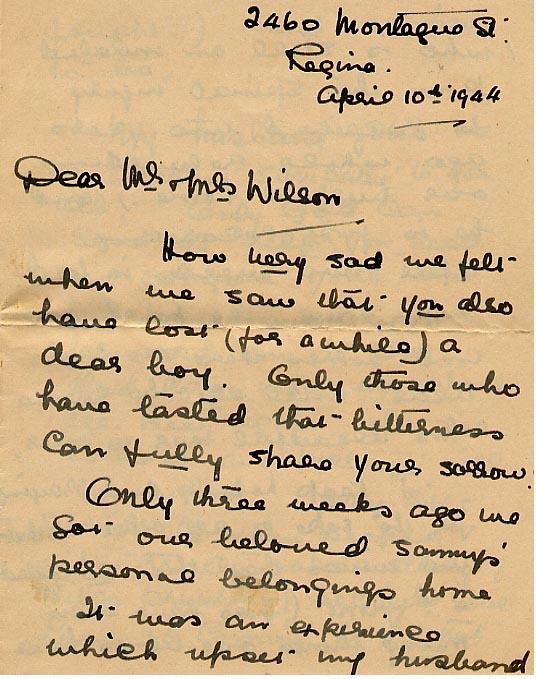 2460 Montague St.
Regina.
April 10th 1944
Dear Mr & Mrs Wilson
How very sad we felt
when we saw that you also
have lost (for a while) a
dear boy. Only those who
have tasted that bitterness
Can fully share your sorrow.
Only three weeks ago we
Got our beloved Sammy's
personal belongings home
It was an experience
which upset my husband